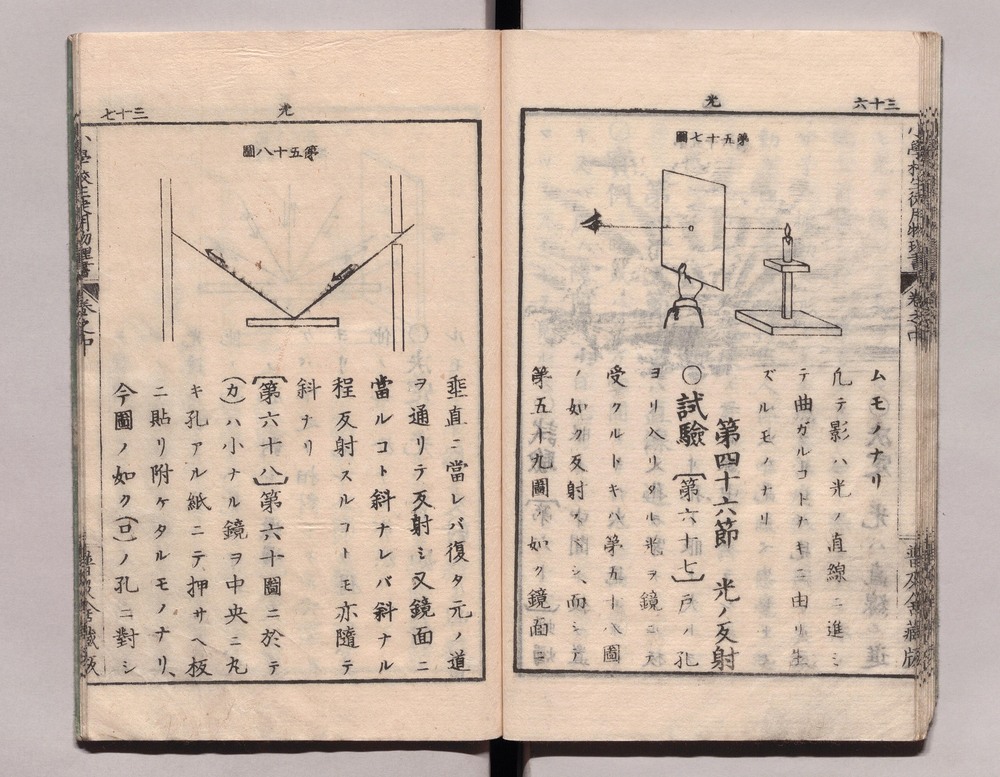 三十六
光
第五十七圖
ムモノナリ
凡テ影ハ光ノ直線ニ進ミ
テ曲ガルコトナキニ由リ生
ズルモノナリ
第四十六節 光ノ反射
○試驗〔第六十七〕戸ノ孔
ヨリ入リタル光ヲ鏡ニテ
受クルトキハ第五十八圖
ノ如ク反射ス而シテ
第五十九圖ノ如ク鏡面ニ
小學校生徒用物理書
卷之中
普及舍藏版
三十七
光
第五十八圖
垂直ニ當レバ復タ元ノ道
ヲ通リテ反射シ又鏡面ニ
當ルコト斜ナレバ斜ナル
程反射スルコトモ亦隨テ
斜ナリ
〔第六十八〕第六十圖ニ於テ
(カ)ハ小ナル鏡ヲ中央ニ丸
キ孔アル紙ニテ押サヘ板
ニ貼リ附ケタルモノナリ、
今圖ノ如ク(ロ)ノ孔ニ對シ
小學校生徒用物理書
卷之中
普及舍藏版